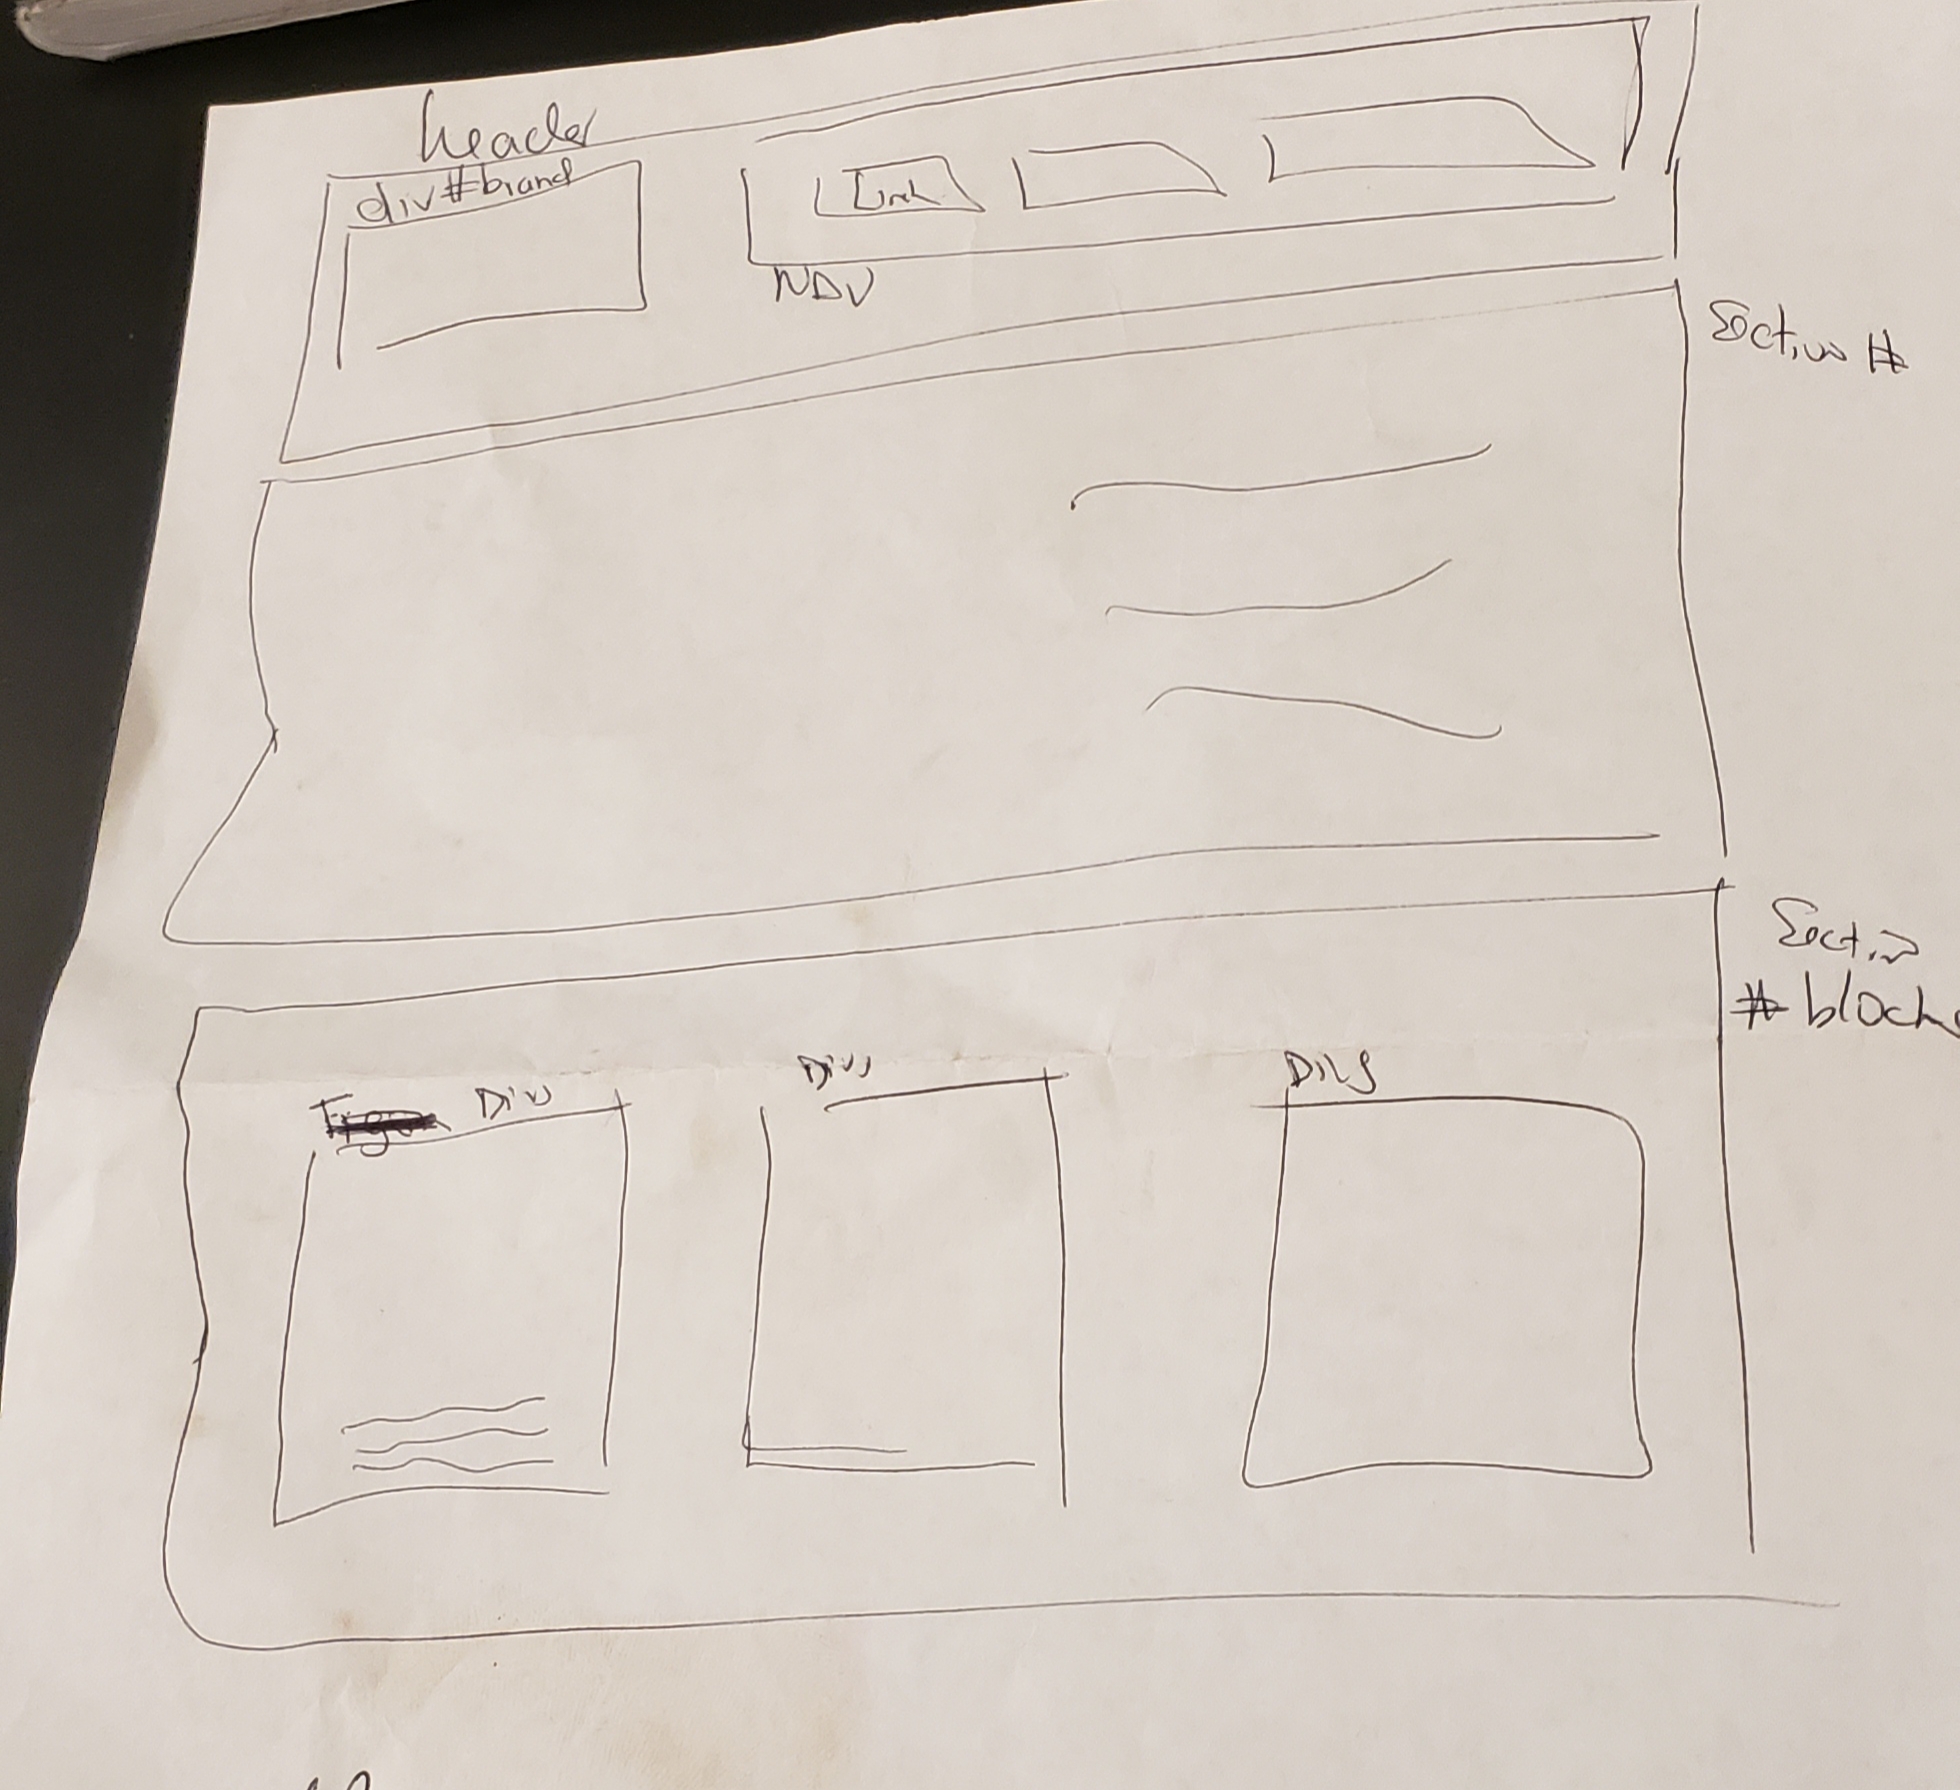 header
div#brand
Link
NAV
Section #
Section
# block
Div
Divs
Divs